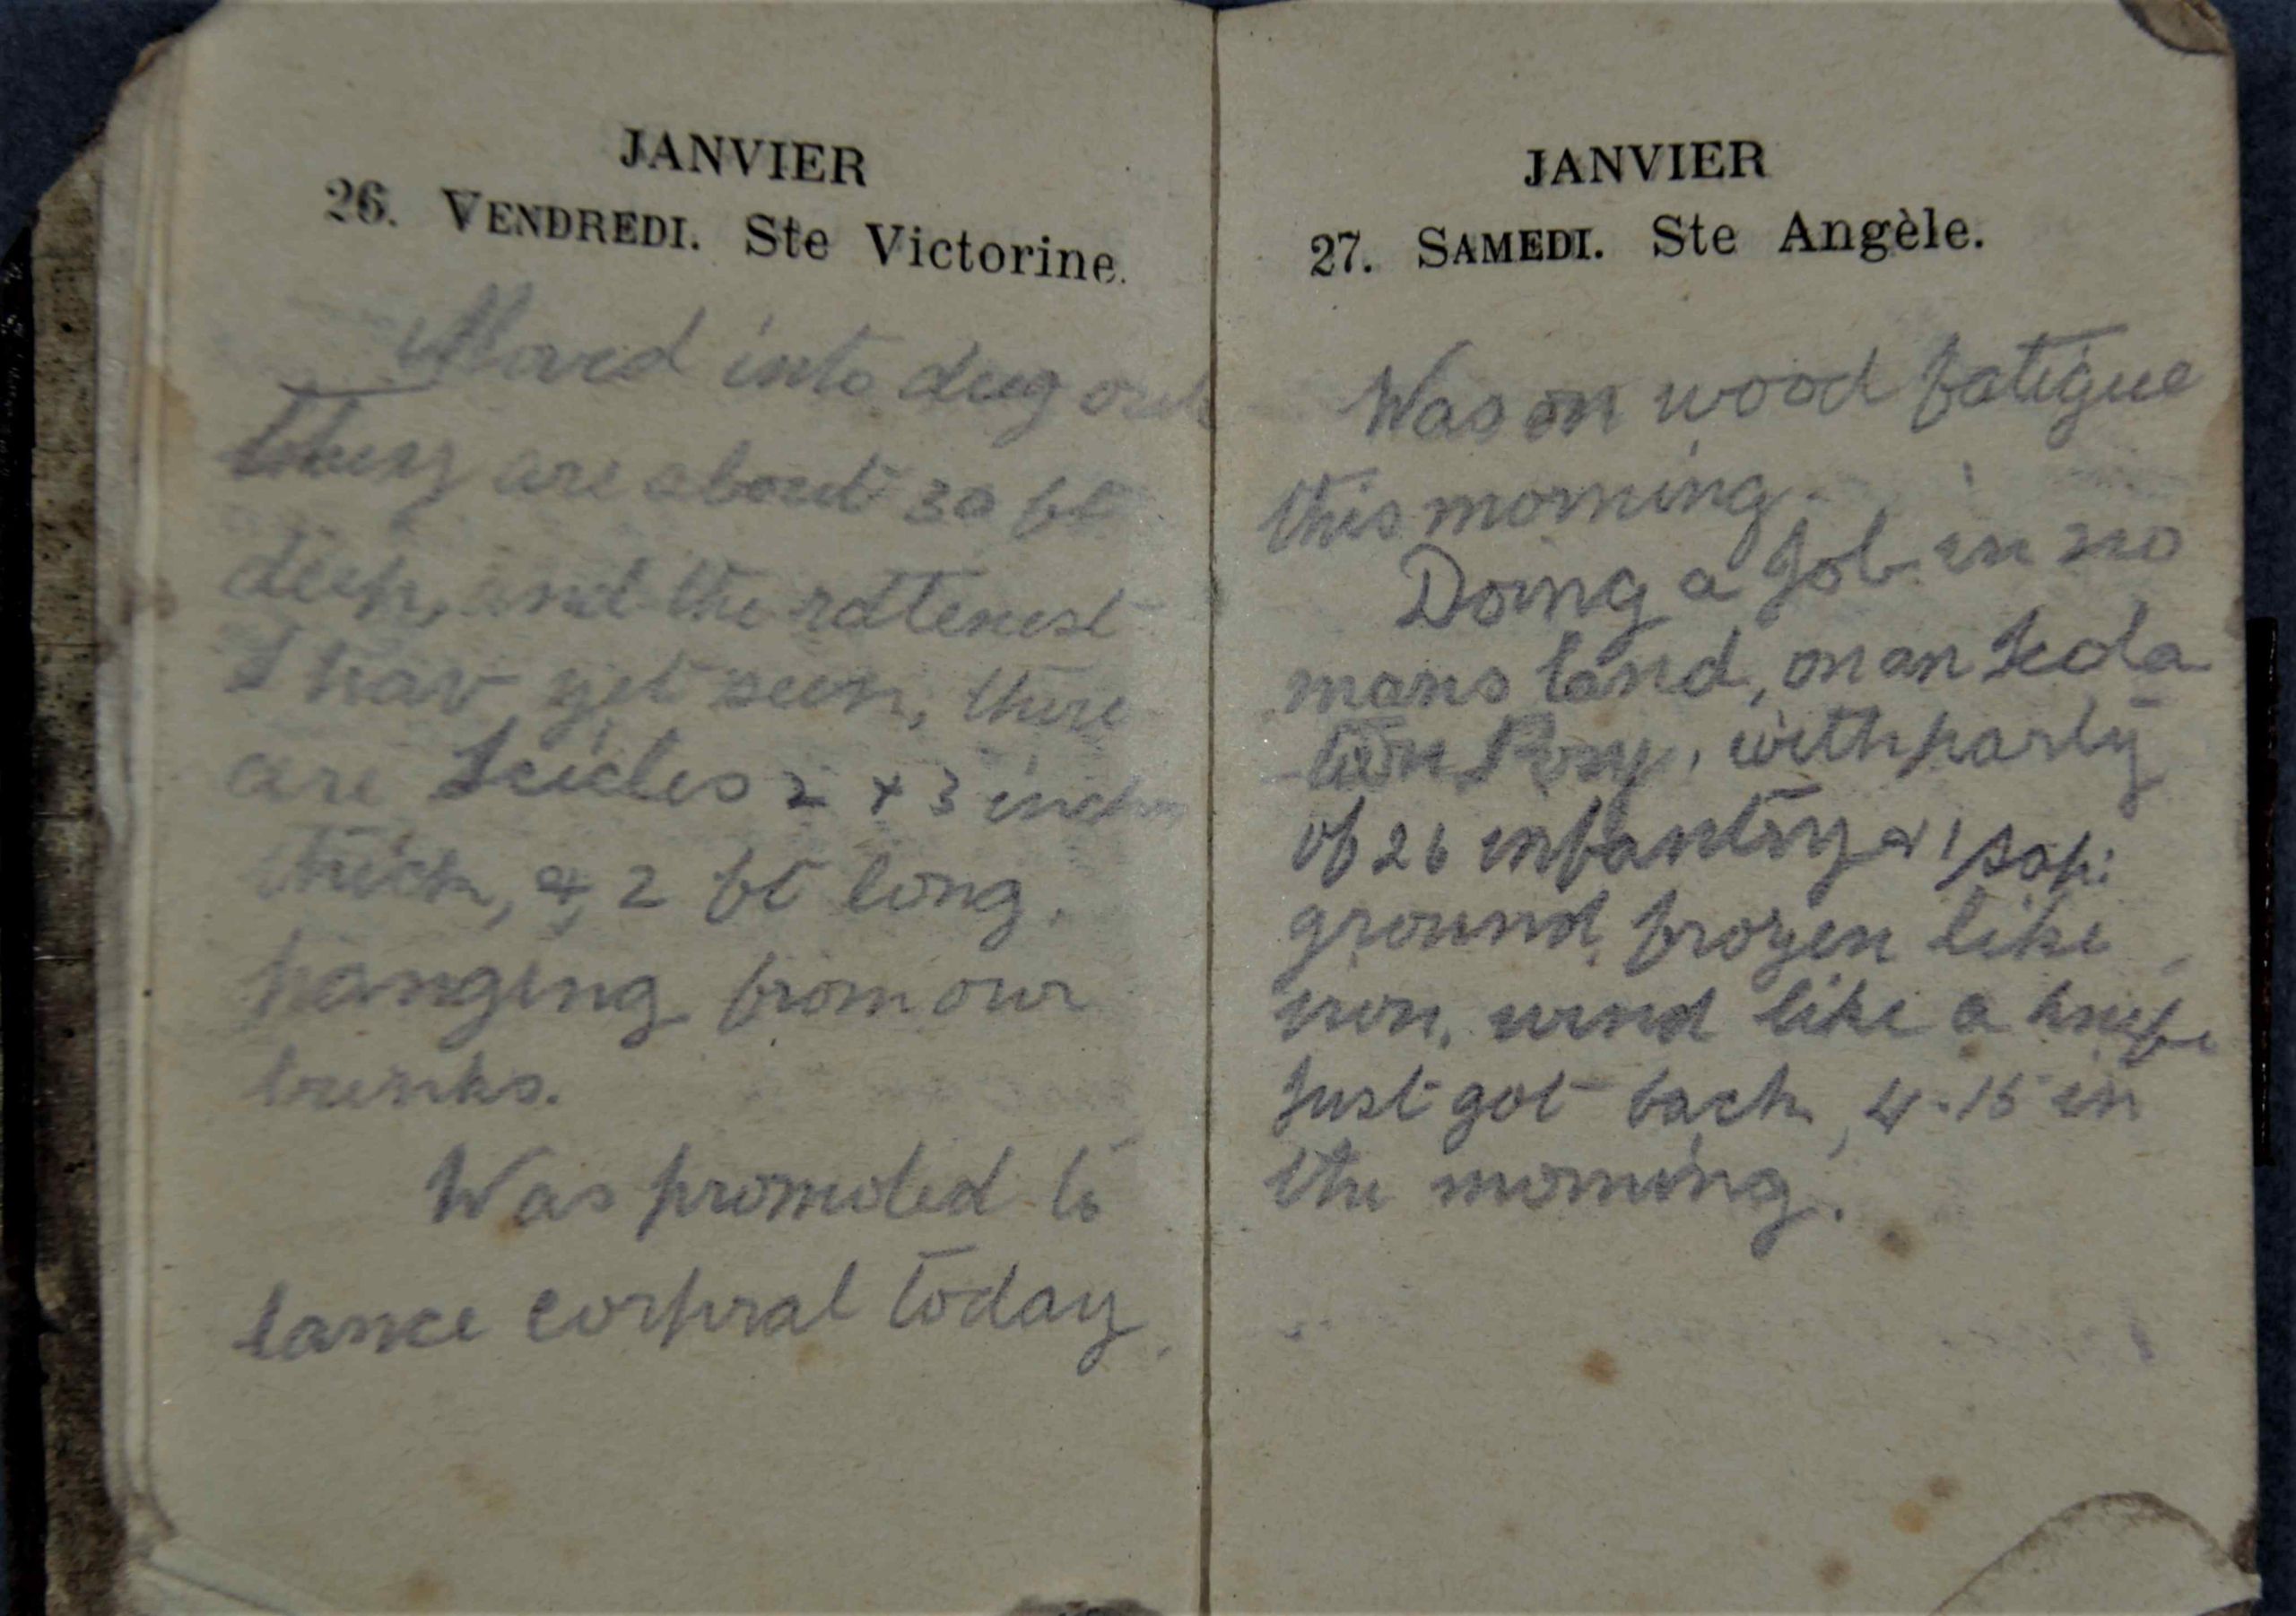 JANVIER
26. VENDREDI. Ste Victorine.
Moved into dug out
they are about 30 ft
deep, and the rottenest
I hav yet seen, there
are Icicles 2 + 3 inches
thick, & 2 ft long.
hanging from our
bunks.
Was promoted to
lance corpral today.
JANVIER
27. SAMEDI. Ste Angèle.
Was on wood fatigue
this morning.
Doing a Job in no
mans land, on an Isola
tion Posy, with party
of 26 infantry & 1 sap:
ground frozen like
iron, wind like a knife
Just got back, 4.15 in
the morning.